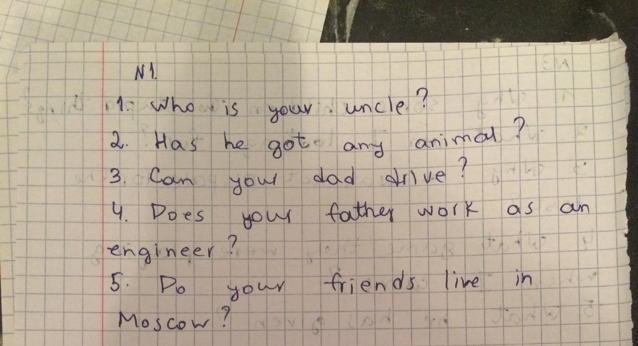 N1.
1. Who is your uncle?
2. Has he got any animal?
3. Can your dad drive?
4. Does your father work as an
engineer?
5. Do your friends live in
Moscow?